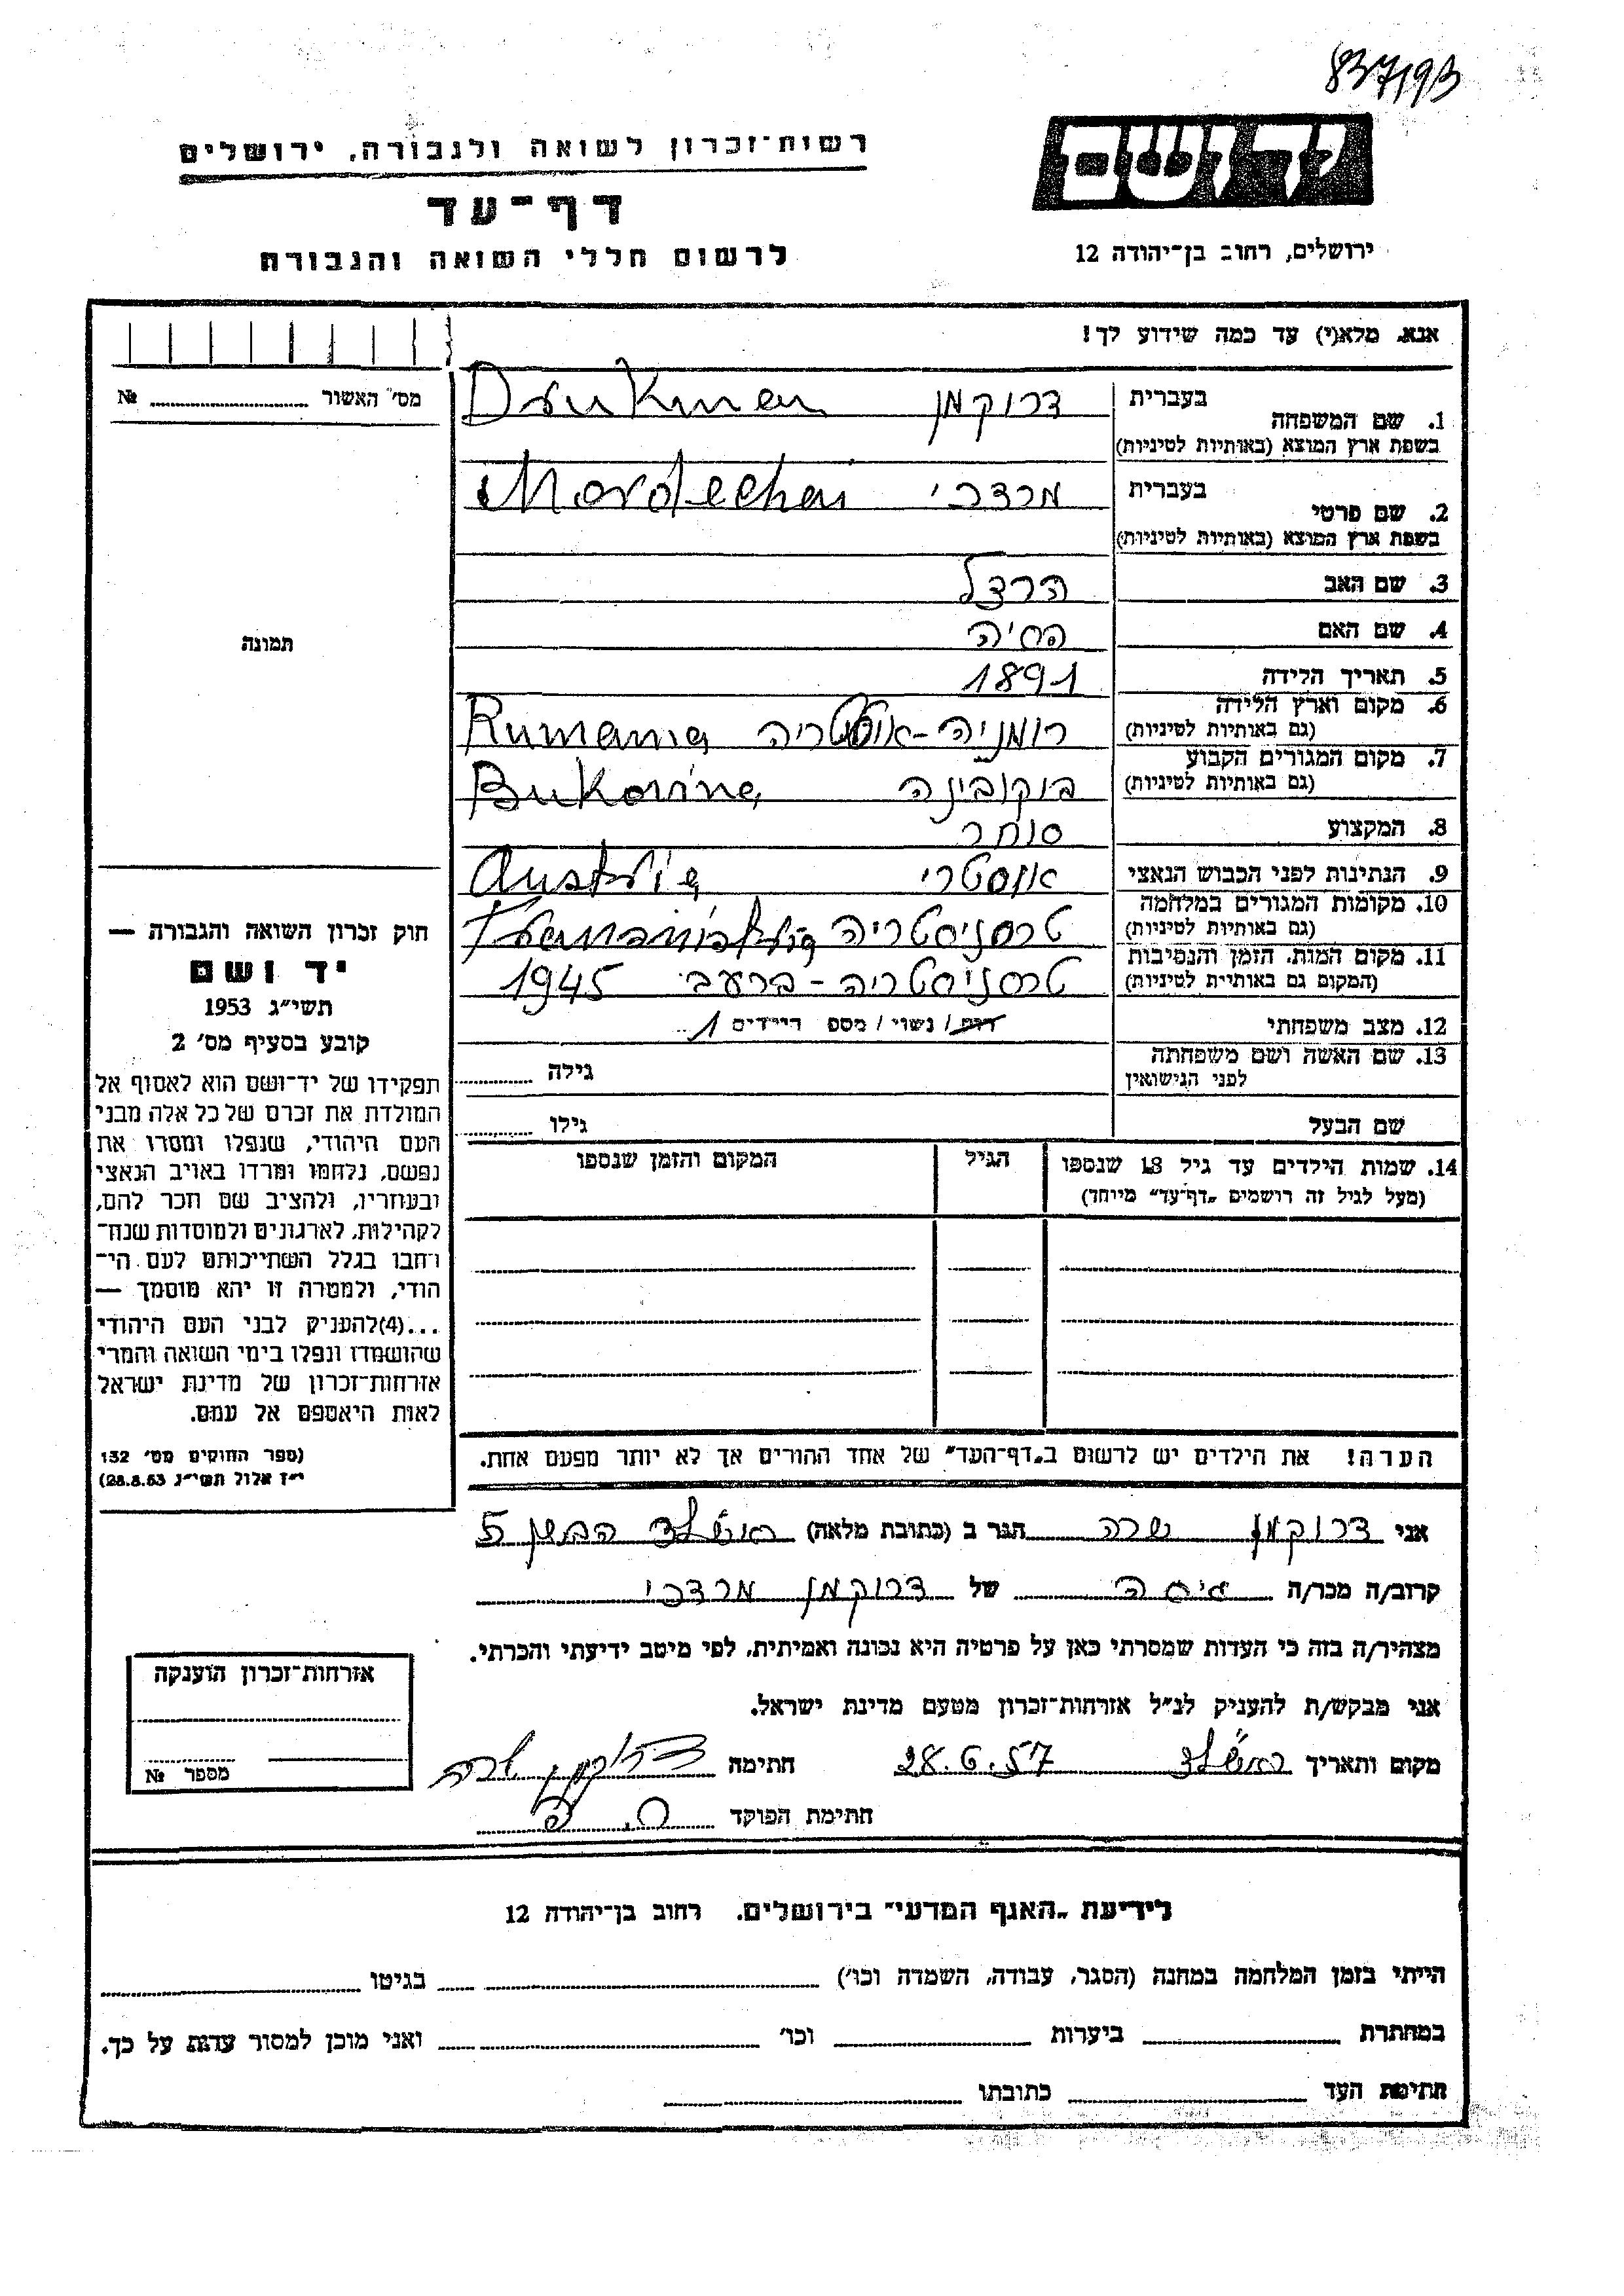 837193
יד ושם
רשות־זכרון לשואה ולגבורה, ירושלים
דף־עד
לרשום חללי השואה והגבורה
ירושלים, רחוב בן־יהודה 12
אנא, מלא(י) עד כמה שידוע לך!
מס׳ האשור № 
1. שם המשפחה
בעברית דרוקמן Drukman
בשפת ארץ המוצא (באותיות לטיניות)
2. שם פרטי
בעברית מרדכי Mordechai
בשפת ארץ המוצא (באותיות לטיניות)
3. שם האב הרצל
4. שם האם חיה
5. תאריך הלידה 1891
6. מקום וארץ הלידה רומניה - אוסטריה Rumania
(גם באותיות לטיניות)
7. מקום המגורים הקבוע בוקובינה Bukovina
(גם באותיות לטיניות)
8. המקצוע סוחר
9. הנתינות לפני הכבוש הנאצי אוסטרי Austria
10. מקומות המגורים במלחמה טרסניסטריה
(גם באותיות לטיניות)
11. מקום המות, הזמן והנסיבות טרסניסטריה - ברעב 1945
(המקום גם באותיות לטיניות)
12. מצב משפחתי רוק / נשוי / מספ הילדים 1
13. שם האשה ושם משפחתה גילה
לפני הנישואין
שם הבעל גילו
14. שמות הילדים עד גיל 18 שנספו הגיל המקום והזמן שנספו
(מעל לגיל זה רושמים „דף־עד״ מיוחד)
הערה! את הילדים יש לרשום ב„דף־העד״ של אחד ההורים אך לא יותר מפעם אחת.
תמונה
חוק זכרון השואה והגבורה —
יד ושם
תשי״ג 1953
קובע בסעיף מס׳ 2
תפקידו של יד־ושם הוא לאסוף אל
המולדת את זכרם של כל אלה מבני
העם היהודי, שנפלו ומסרו את
נפשם, נלחמו ומרדו באויב הנאצי
ובעוזריו, ולהציב שם וזכר להם,
לקהילות, לארגונים ולמוסדות שנח־
רבו בגלל השתייכותם לעם הי־
הודי, ולמטרה זו יהא מוסמך —
...(4) להעניק לבני העם היהודי
שהושמדו ונפלו בימי השואה והמרי
אזרחות־זכרון של מדינת ישראל
לאות היאספם אל עמם.
(ספר החוקים מס׳ 132
י״ז אלול תשי״ג 28.8.53)
אני דרוקמן שרה הגר ב (כתובת מלאה) 5
קרוב/ה מכר/ה של דרוקמן מרדכי
מצהיר/ה בזה כי העדות שמסרתי כאן על פרטיה היא נכונה ואמיתית, לפי מיטב ידיעתי והכרתי.
אני מבקש/ת להעניק לנ״ל אזרחות־זכרון מטעם מדינת ישראל.
מקום ותאריך 28.6.57 חתימה דרוקמן שרה
חתימת הפוקד
אזרחות־זכרון הוענקה
מספר №
לידיעת „האגף המדעי״ בירושלים. רחוב בן־יהודה 12
הייתי בזמן המלחמה במחנה (הסגר, עבודה, השמדה וכו׳) בגיטו
במחתרת ביערות וכו׳ ואני מוכן למסור עדות על כך.
חתימת העד כתובתו